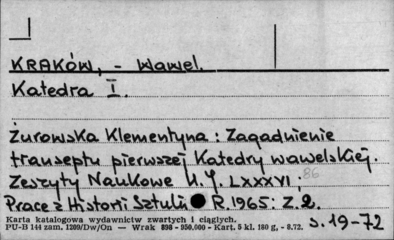 KRAKÓW, - Wawel.
Katedra I.
Żurowska Klementyna: Zagadnienie
transeptu pierwszej Katedry wawelskiej.
Zeszyty Naukowe U.J. LXXXVI; 86
Prace z Historii Sztuki R.1965: Z.2.
Karta katalogowa wydawnictw zwartych i ciągłych. s. 19-72
PU-B 144 zam. 1209/Dw/On — Wrak 898 - 950.000 - Kart. 5 kl. 180 g, - 8.72.